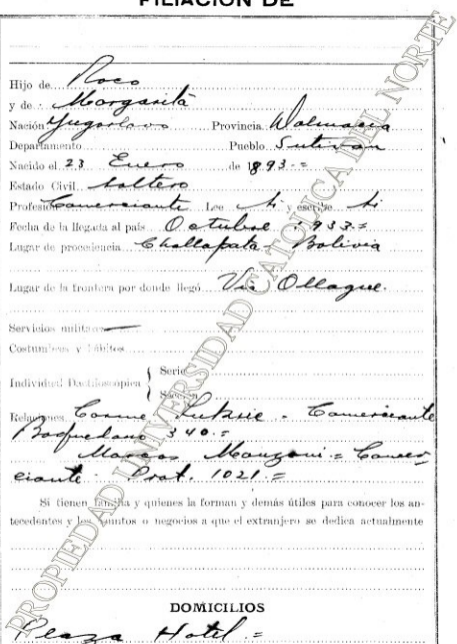 FILIACIÓN DE
Hijo de Roco
y de Margarita
Nación Yugoslavo Provincia Dalmacia
Departamento Pueblo Sutivan
Nacido el 23 Enero de 1893.=
Estado Civil Soltero
Profesión Comerciante Lee Si y escribe Si
Fecha de la llegada al país Octubre 1933.=
Lugar de procedencia Challapata - Bolivia
Lugar de la frontera por donde llegó Via Ollague.
Servicios militares
Costumbres y hábitos
Serie
Individual Dactiloscópica {
Sección
Relaciones Cosme Luksic - Comerciante
Baquedano 340.=
Marcos Manzoni = Comer-
ciante - Prat. 1021.=
Si tienen familia y quienes la forman y demás útiles para conocer los an-
tecedentes y los puntos o negocios a que el extranjero se dedica actualmente
DOMICILIOS
Plaza Hotel =
PROPIEDAD UNIVERSIDAD CATOLICA DEL NORTE